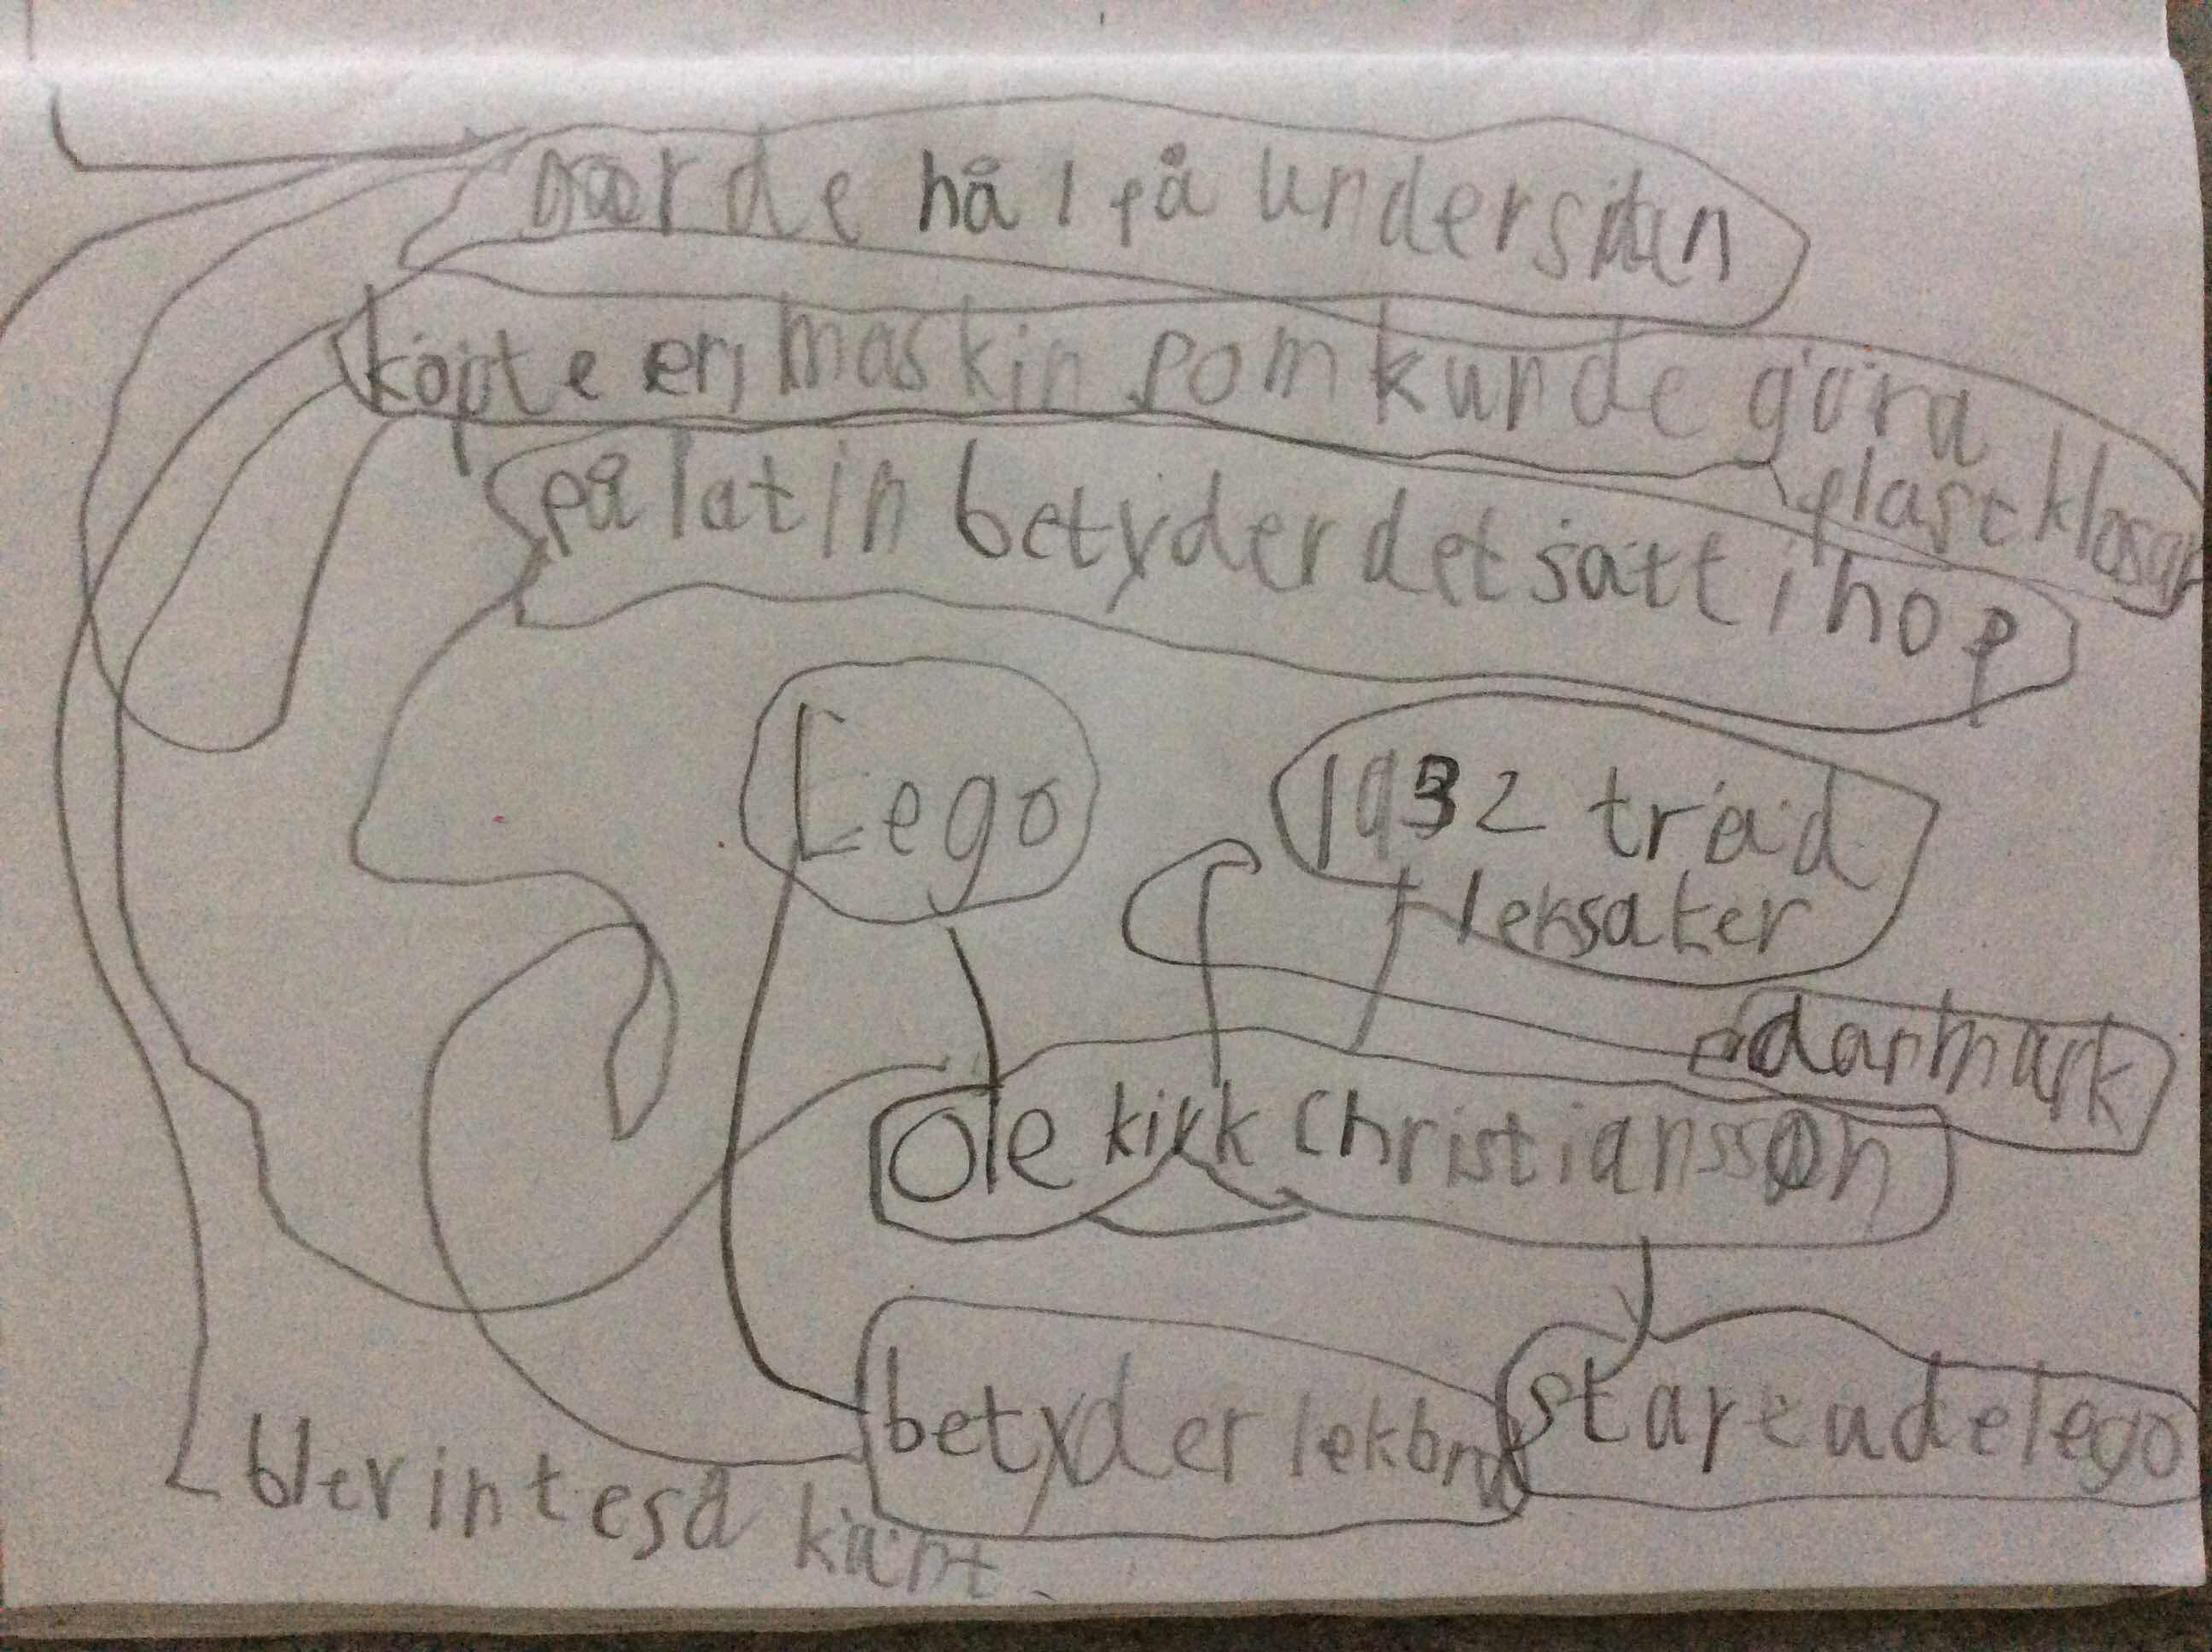 de hål på undersidan
köpte en maskin som kunde göra
plastklosar
på latin betyder det sätt ihop
Lego
1932 träd
leksaker
danmark
Ole kirk Christiansson
betyder lekbra
startade lego
blev inte så känt.